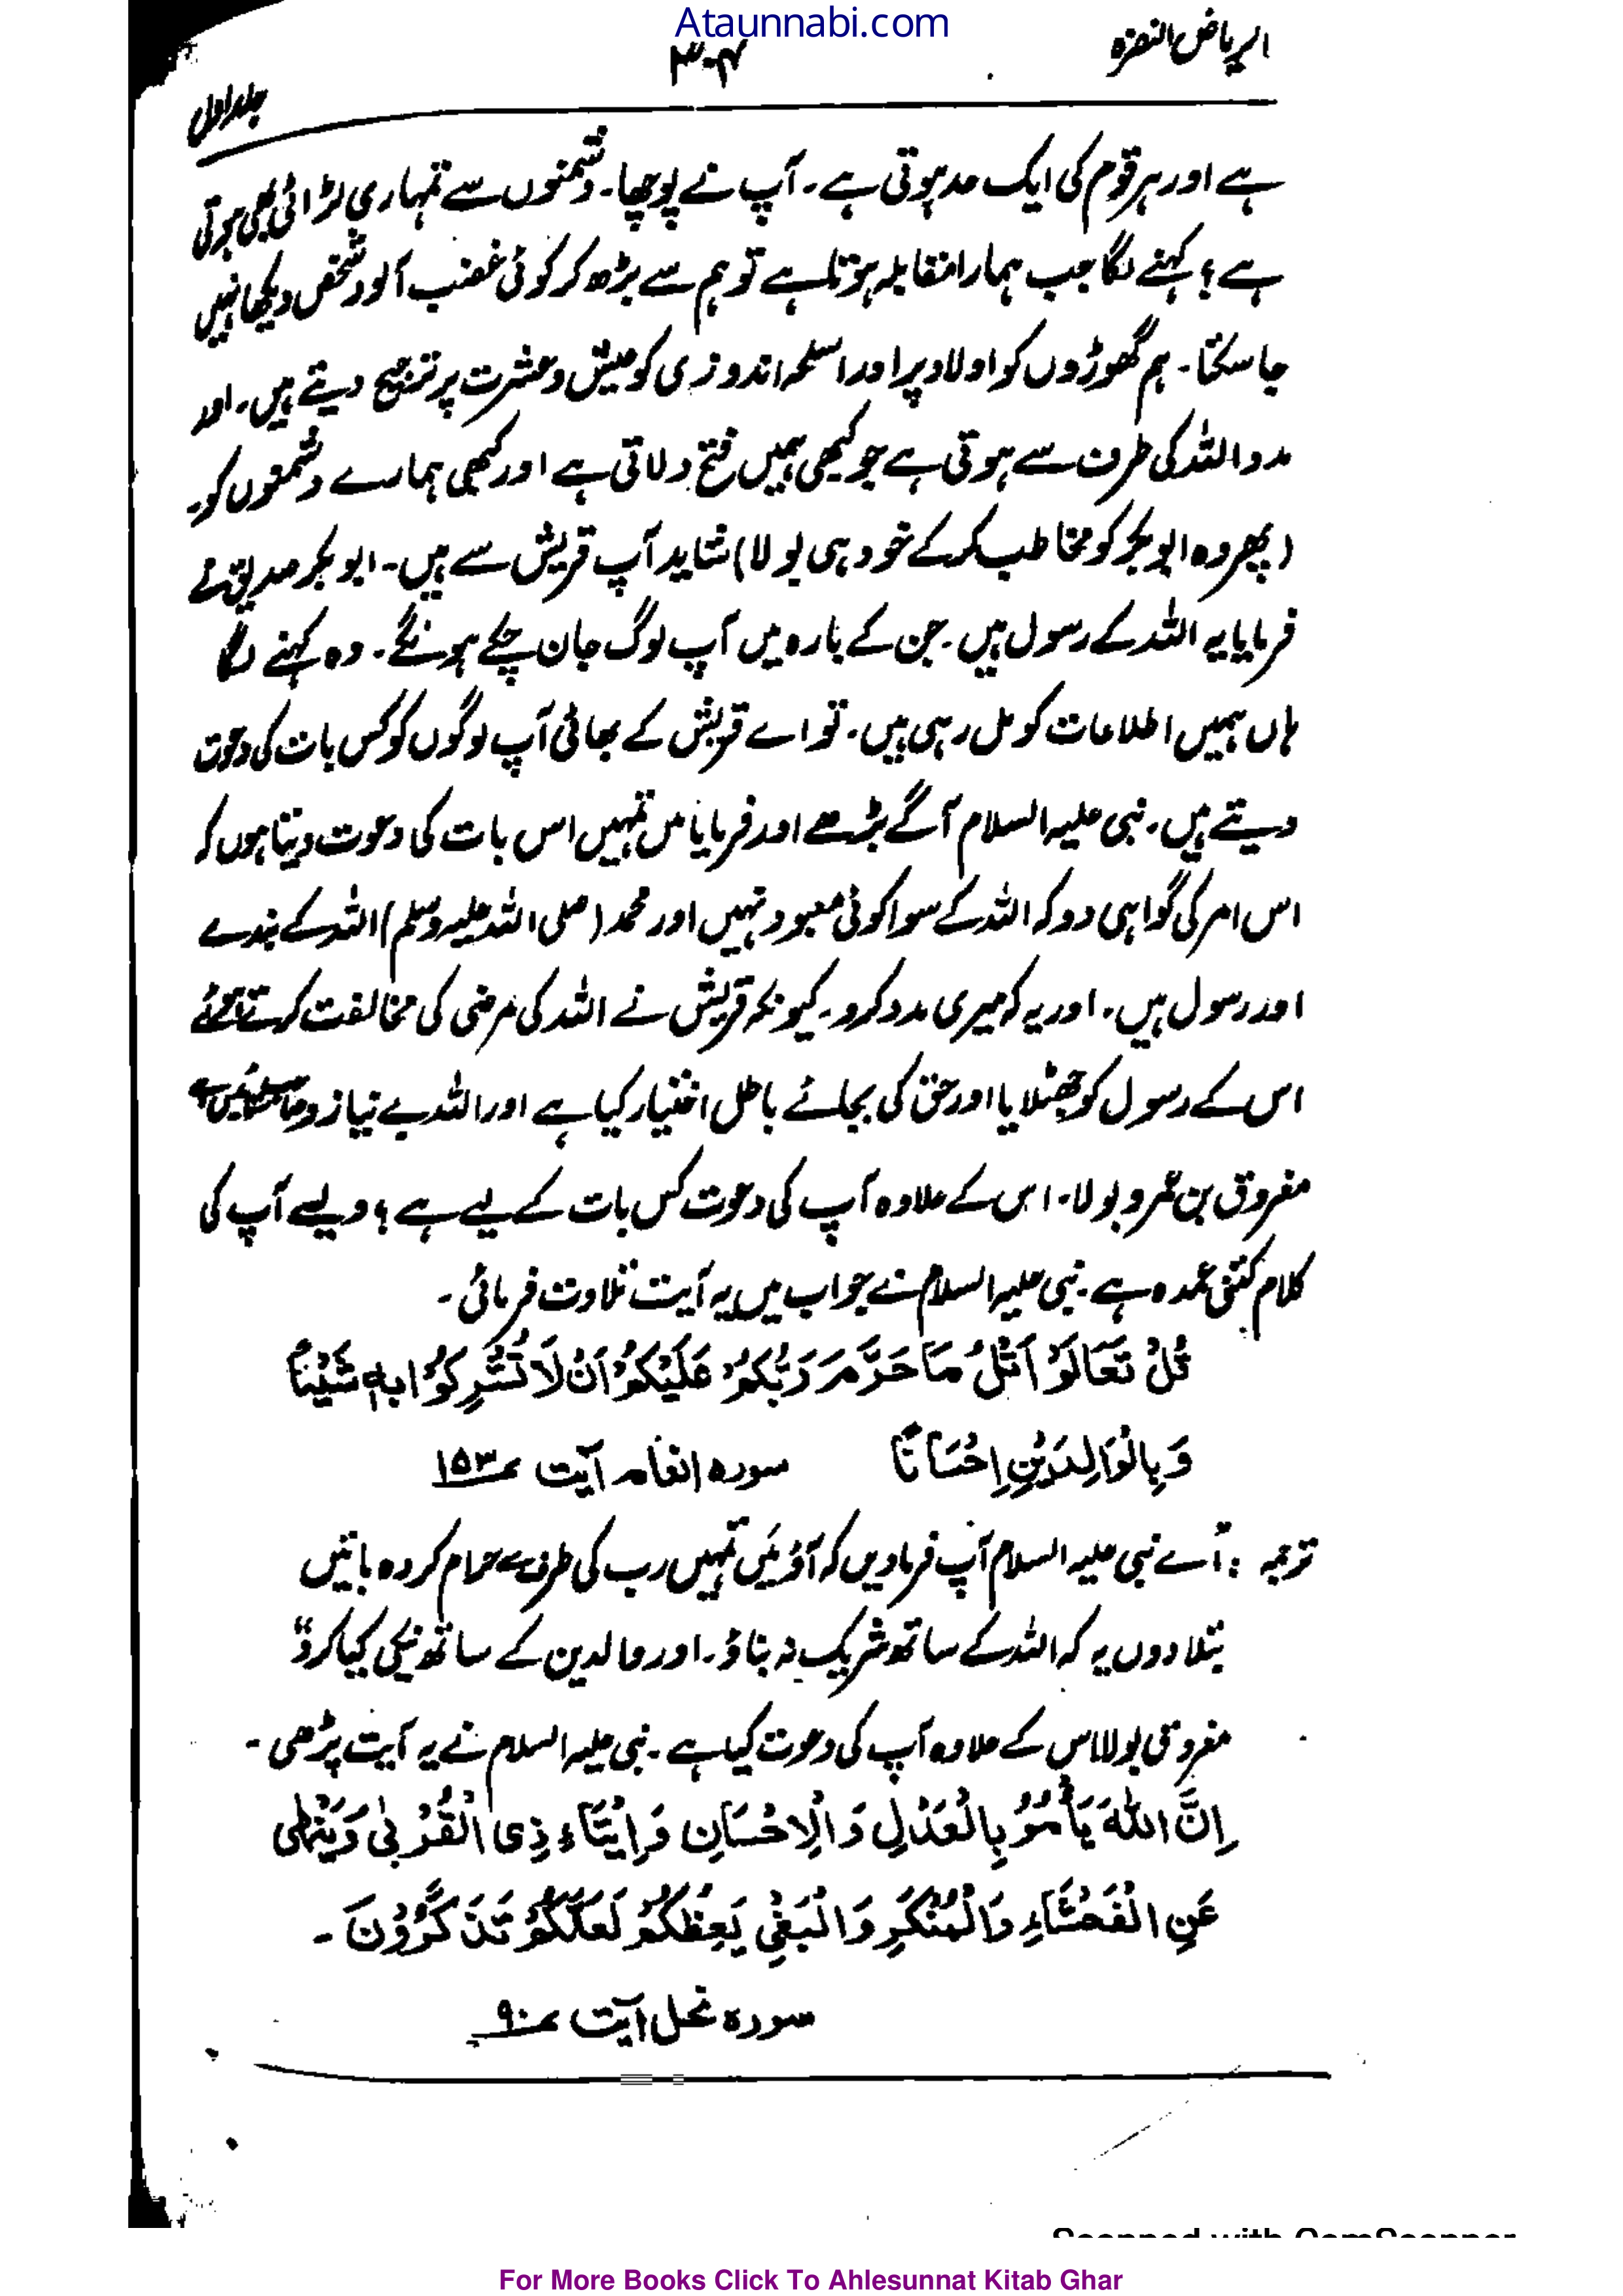 Ataunnabi.com
الریاض النضرہ
۳۰۴
جلد اول
ہے اور ہر قوم کی ایک حد ہوتی ہے۔ آپ نے پوچھا۔ دشمنوں سے تمہاری لڑائی بھی ہوتی
ہے؟ کہنے لگا جب ہمارا مقابلہ ہوتا ہے تو ہم سے بڑھ کر کوئی غضب آلود شخص دیکھا نہیں
جا سکتا۔ ہم گھوڑوں کو اولاد پر اور اسلحہ اندوزی کو عیش و عشرت پر ترجیح دیتے ہیں۔ اور
مدد اللہ کی طرف سے ہوتی ہے جو کبھی ہمیں فتح دلاتی ہے اور کبھی ہمارے دشمنوں کو۔
(پھر وہ ابوبکر کو مخاطب کر کے خود ہی بولا) شاید آپ قریش سے ہیں۔ ابوبکر صدیق نے
فرمایا یہ اللہ کے رسول ہیں۔ جن کے بارہ میں آپ لوگ جان چکے ہونگے۔ وہ کہنے لگا
ہاں ہمیں اطلاعات کو مل رہی ہیں۔ تو اے قریش کے بھائی آپ لوگوں کو کس بات کی دعوت
دیتے ہیں۔ نبی علیہ السلام آگے بڑھے اور فرمایا میں تمہیں اس بات کی دعوت دیتا ہوں کہ
اس امر کی گواہی دو کہ اللہ کے سوا کوئی معبود نہیں اور محمد (صلی اللہ علیہ وسلم) اللہ کے بندے
اور رسول ہیں۔ اور یہ کہ میری مدد کرو۔ کیونکہ قریش نے اللہ کی مرضی کی مخالفت کرتے ہوئے
اس کے رسول کو جھٹلایا اور حق کی بجائے باطل اختیار کیا ہے اور اللہ بے نیاز و
مفروق بن عمرو بولا۔ اس کے علاوہ آپ کی دعوت کس بات کے لیے ہے؟ ویسے آپ کی
کلام کتنی عمدہ ہے۔ نبی علیہ السلام نے جواب میں یہ آیت تلاوت فرمائی۔
قُلْ تَعَالَوْ اَتْلُ مَا حَرَّمَ رَبُّكُمْ عَلَيْكُمْ اَنْ لَا تُشْرِكُوْا بِهٖ شَيْئًا
وَ بِالْوَالِدَيْنِ اِحْسَانًا سورہ انعام آیت ۱۵۳
ترجمہ : اُے نبی علیہ السلام آپ فرما دیں کہ آؤ میں تمہیں رب کی طرف سے حرام کردہ باتیں
بتلا دوں یہ کہ اللہ کے ساتھ شریک نہ بناؤ۔ اور والدین کے ساتھ نیکی کیا کرو"
مفروق بولا اس کے علاوہ آپ کی دعوت کیا ہے۔ نبی علیہ السلام نے یہ آیت پڑھی۔
اِنَّ اللّٰهَ يَاْمُرُ بِالْعَدْلِ وَالْاِحْسَانِ وَ اِيْتَآءِ ذِى الْقُرْبٰى وَيَنْهٰى
عَنِ الْفَحْشَآءِ وَالْمُنْكَرِ وَالْبَغْىِ يَعِظُكُمْ لَعَلَّكُمْ تَذَكَّرُوْنَ۔
سورہ نحل آیت ۹۰
Scanned with CamScanner
For More Books Click To Ahlesunnat Kitab Ghar